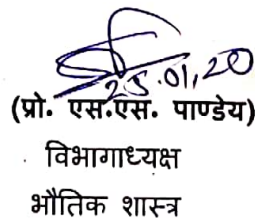 25.01,20
(प्रो. एस.एस. पाण्डेय)
विभागाध्यक्ष
भौतिक शास्त्र